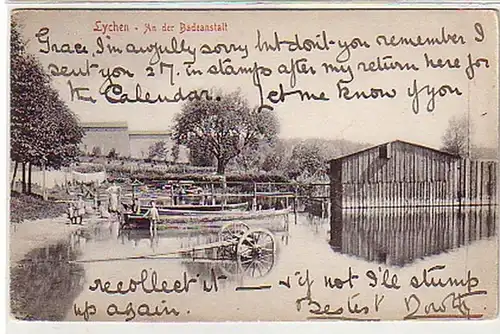 Lychen - An der Badeanstalt
Grace, I'm awfully sorry but don't you remember I
sent you 2/7. in stamps after my return here for
the Calendar. Let me know if you
recollect it — & if not I'll stump
up again. Bestest Dorothy